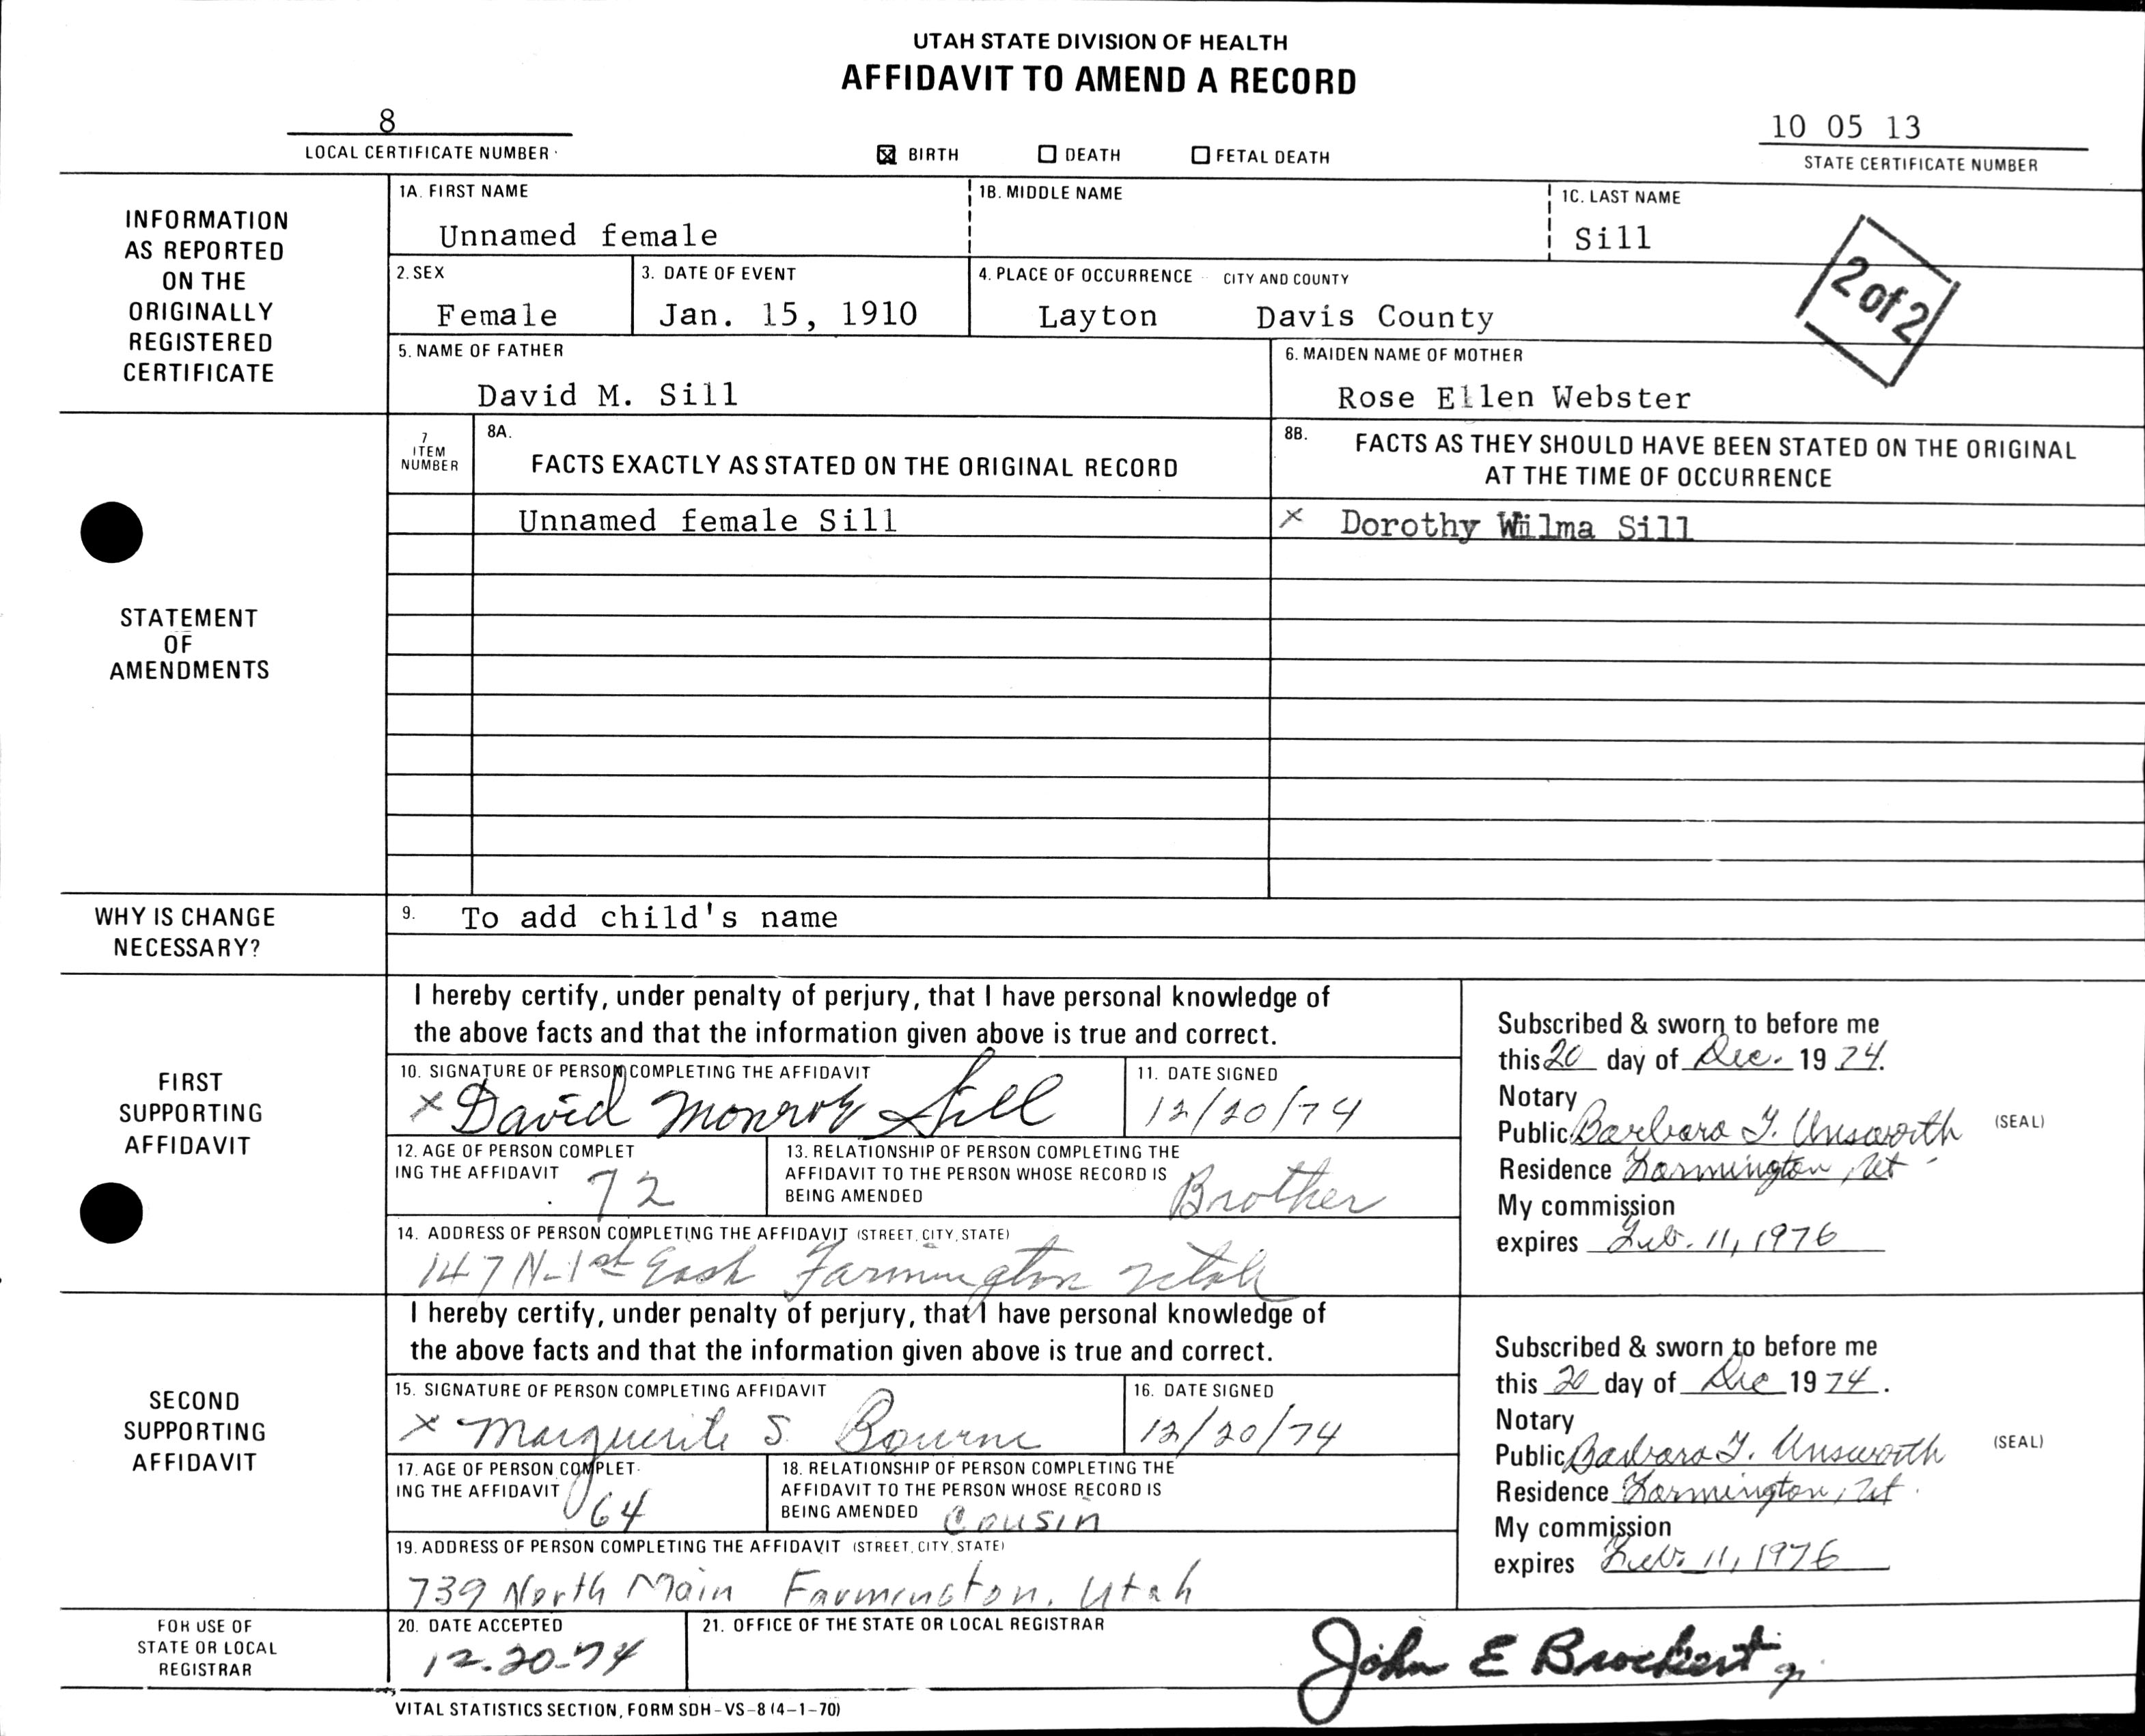 UTAH STATE DIVISION OF HEALTH
AFFIDAVIT TO AMEND A RECORD
8
LOCAL CERTIFICATE NUMBER
☒ BIRTH ☐ DEATH ☐ FETAL DEATH
10 05 13
STATE CERTIFICATE NUMBER
INFORMATION
AS REPORTED
ON THE
ORIGINALLY
REGISTERED
CERTIFICATE
1A. FIRST NAME
Unnamed female
1B. MIDDLE NAME
1C. LAST NAME
Sill
2 of 2
2. SEX
Female
3. DATE OF EVENT
Jan. 15, 1910
4. PLACE OF OCCURRENCE CITY AND COUNTY
Layton Davis County
5. NAME OF FATHER
David M. Sill
6. MAIDEN NAME OF MOTHER
Rose Ellen Webster
STATEMENT
OF
AMENDMENTS
7
ITEM
NUMBER
8A.
FACTS EXACTLY AS STATED ON THE ORIGINAL RECORD
8B. FACTS AS THEY SHOULD HAVE BEEN STATED ON THE ORIGINAL
AT THE TIME OF OCCURRENCE
Unnamed female Sill
x Dorothy Wilma Sill
WHY IS CHANGE
NECESSARY?
9. To add child's name
FIRST
SUPPORTING
AFFIDAVIT
I hereby certify, under penalty of perjury, that I have personal knowledge of
the above facts and that the information given above is true and correct.
10. SIGNATURE OF PERSON COMPLETING THE AFFIDAVIT
x David Monroe Sill
11. DATE SIGNED
12/20/74
12. AGE OF PERSON COMPLET
ING THE AFFIDAVIT 72
13. RELATIONSHIP OF PERSON COMPLETING THE
AFFIDAVIT TO THE PERSON WHOSE RECORD IS
BEING AMENDED Brother
14. ADDRESS OF PERSON COMPLETING THE AFFIDAVIT (STREET, CITY, STATE)
147 N-1st East Farmington Utah
Subscribed & sworn to before me
this 20 day of Dec. 19 74.
Notary
Public Barbara T. Unsworth (SEAL)
Residence Farmington, Ut
My commission
expires Feb. 11, 1976
SECOND
SUPPORTING
AFFIDAVIT
I hereby certify, under penalty of perjury, that I have personal knowledge of
the above facts and that the information given above is true and correct.
15. SIGNATURE OF PERSON COMPLETING AFFIDAVIT
x Marguerite S. Bourne
16. DATE SIGNED
12/20/74
17. AGE OF PERSON COMPLET-
ING THE AFFIDAVIT 64
18. RELATIONSHIP OF PERSON COMPLETING THE
AFFIDAVIT TO THE PERSON WHOSE RECORD IS
BEING AMENDED Cousin
19. ADDRESS OF PERSON COMPLETING THE AFFIDAVIT (STREET, CITY, STATE)
739 North Main Farmington, Utah
Subscribed & sworn to before me
this 20 day of Dec 19 74.
Notary
Public Barbara T. Unsworth (SEAL)
Residence Farmington, Ut.
My commission
expires Feb. 11, 1976
FOR USE OF
STATE OR LOCAL
REGISTRAR
20. DATE ACCEPTED
12-20-74
21. OFFICE OF THE STATE OR LOCAL REGISTRAR
John E Brockert
VITAL STATISTICS SECTION, FORM SDH-VS-8 (4-1-70)